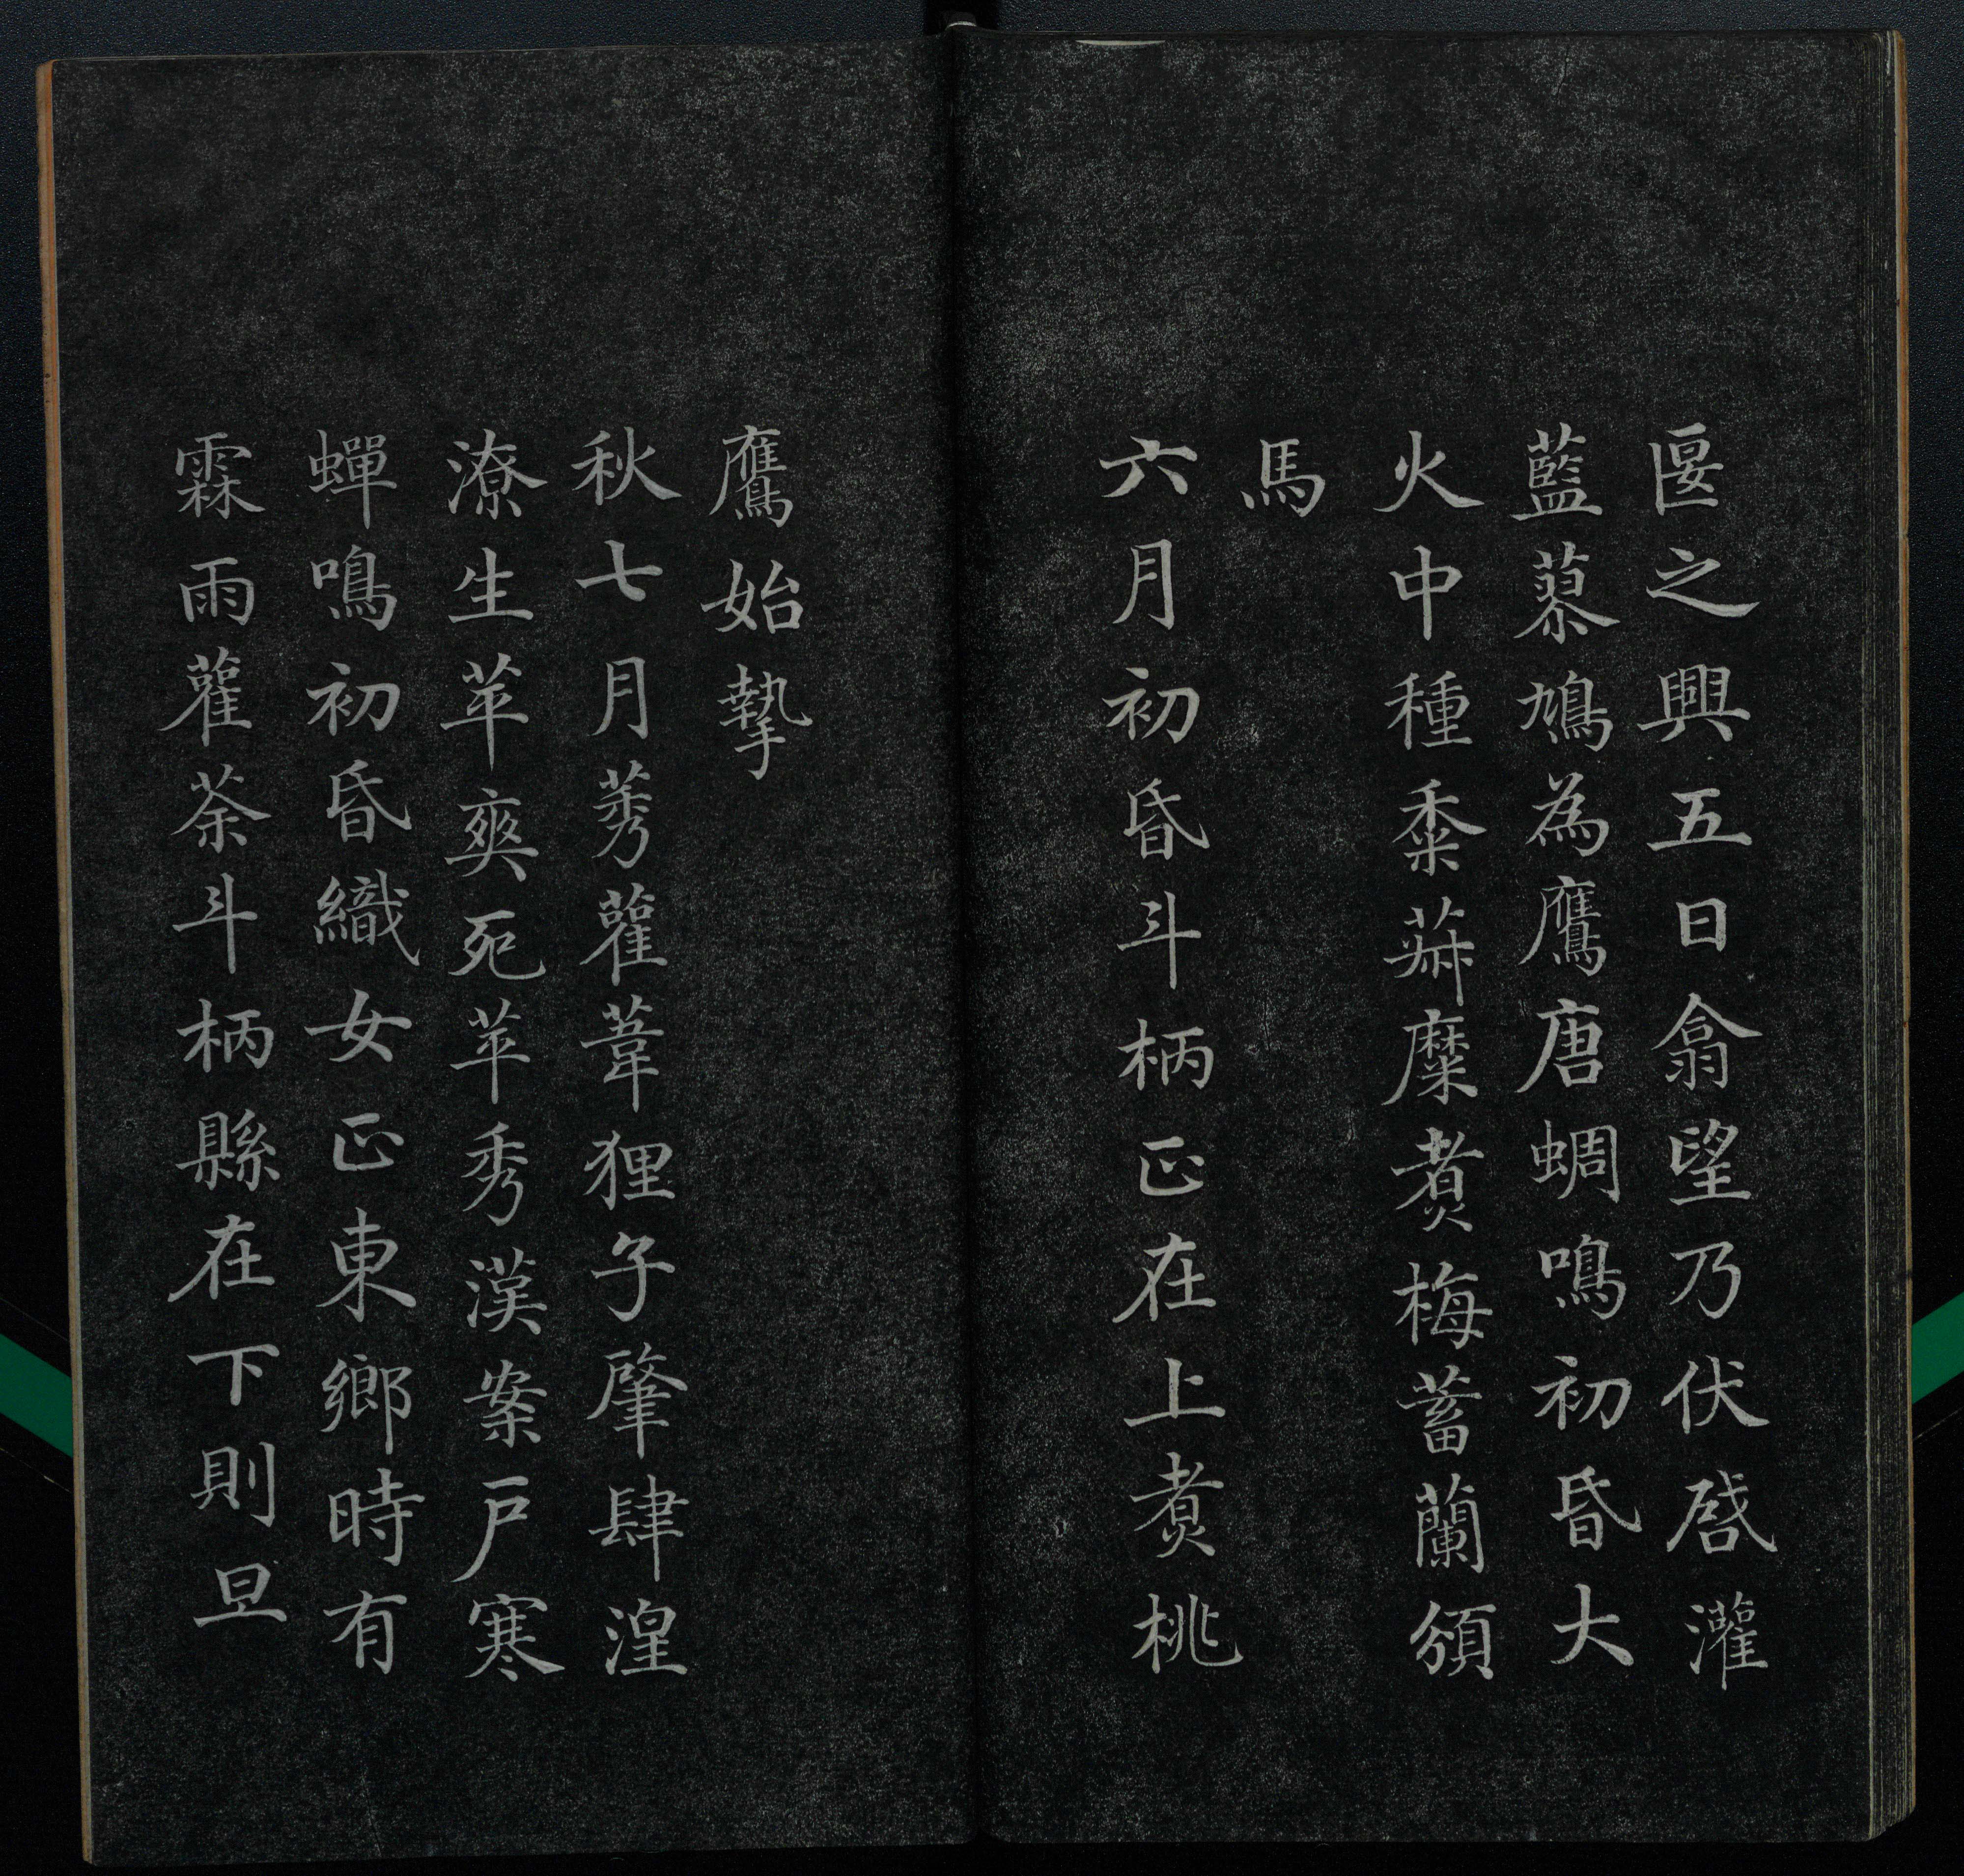 匽之興五日翕望乃伏啓灌
藍蓼鳩為鷹唐蜩鳴初昏大
火中種黍菽糜煮梅蓄蘭頒
馬
六月初昏斗柄正在上煮桃
鷹始摯
秋七月莠雚葦狸子肇肆湟
潦生苹爽死苹秀漢案戶寒
蟬鳴初昏織女正東鄉時有
霖雨雚荼斗柄縣在下則旦